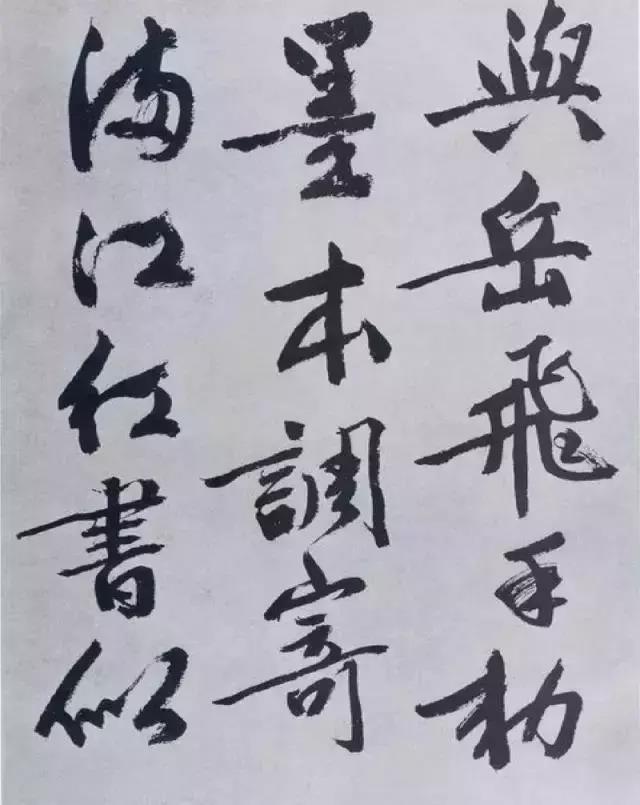 與岳飛手勑
墨本調寄
满江紅書似